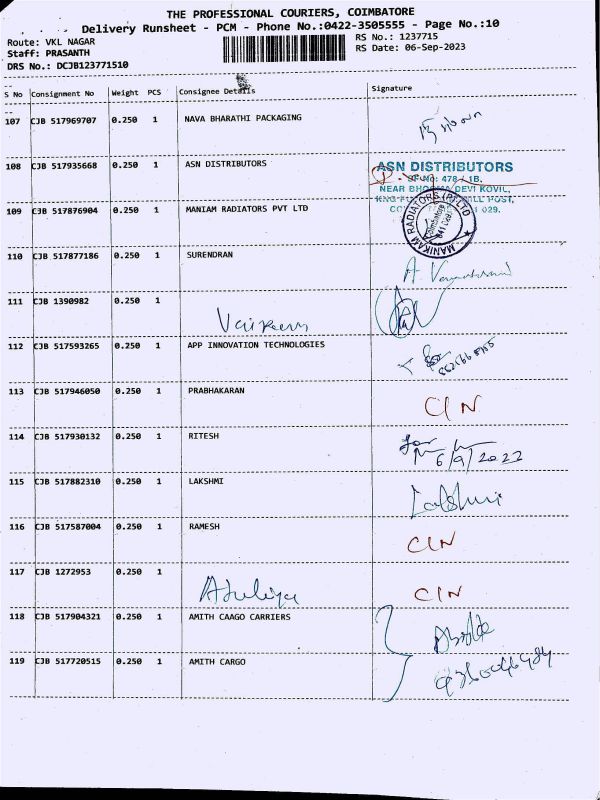 THE PROFESSIONAL COURIERS, COIMBATORE
Delivery Runsheet - PCM - Phone No.:0422-3505555 - Page No.:10
Route: VKL NAGAR
RS No.: 1237715
Staff: PRASANTH
RS Date: 06-Sep-2023
DRS No.: DCJB123771510
S No Consignment No Weight PCS Consignee Details Signature
107 CJB 517969707 0.250 1 NAVA BHARATHI PACKAGING
108 CJB 517935668 0.250 1 ASN DISTRIBUTORS ASN DISTRIBUTORS
SF No: 478 / 1B,
NEAR BHOOMA DEVI KOVIL,
109 CJB 517876904 0.250 1 MANIAM RADIATORS PVT LTD MANIKAM RADIATORS (P) LTD
110 CJB 517877186 0.250 1 SURENDRAN
111 CJB 1390982 0.250 1
112 CJB 517593265 0.250 1 APP INNOVATION TECHNOLOGIES
113 CJB 517946050 0.250 1 PRABHAKARAN CIN
114 CJB 517930132 0.250 1 RITESH 6/9/2022
115 CJB 517882310 0.250 1 LAKSHMI Lakshmi
116 CJB 517587004 0.250 1 RAMESH CIN
117 CJB 1272953 0.250 1 CIN
118 CJB 517904321 0.250 1 AMITH CAAGO CARRIERS
119 CJB 517720515 0.250 1 AMITH CARGO